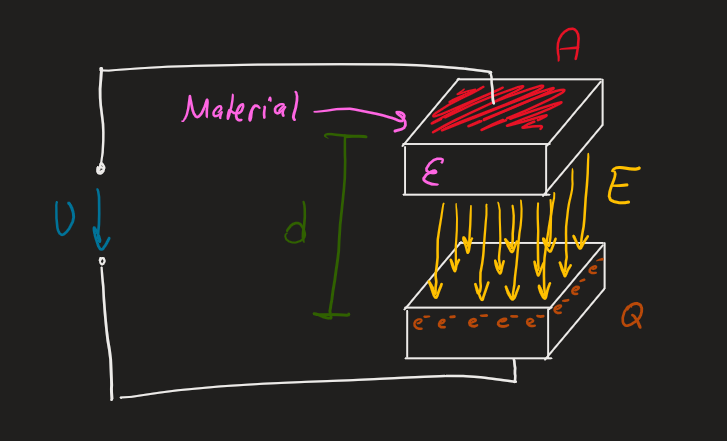 A
Material
ε
E
U
d
e⁻ e⁻ e⁻ e⁻ e⁻ e⁻ e⁻ e⁻
Q